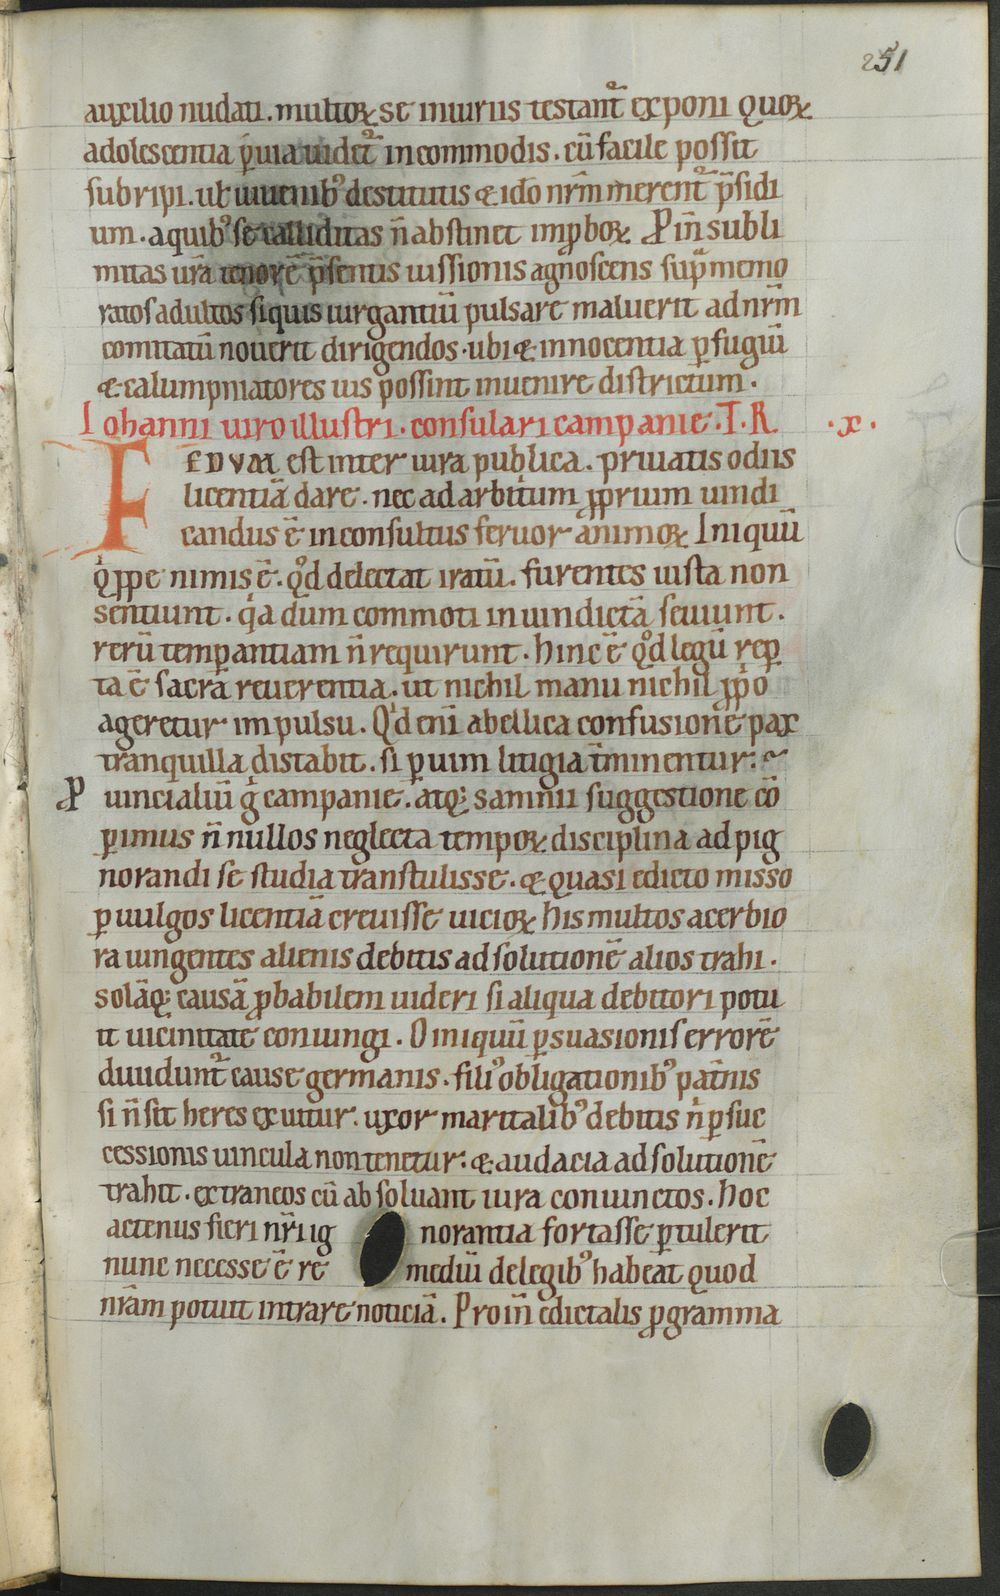 251
auxilio nudati. multoꝝ se iniuriis testant᷑ exponi Quoꝝ
adolescentia ꝑuia uidet᷑ incommodis. cū facile possit
subripi. ut iuuenibꝰ destitutis & ido nr̄m merent᷑ p̄sidi
um. a quibꝰ se calliditas n̄ abstinet imꝓboꝝ. Ꝓin̄ subli
mitas ur̄a tenorē p̄sentis iussionis agnoscens sup̄ memo
ratos adultos siquis iurgantiū pulsare maluerit ad nr̄m
comitatū nouerit dirigendos. ubi & innocentia ꝑfugiū
& calumpniatores ius possint inuenire districtum.
Iohanni uiro illustri. consulari campanie. T. R. .x.
FEDVM est inter iura publica. priuatis odiis
licentiā dare. nec ad arbitͥum ꝓprium uindi
candus ē inconsultus feruor animoꝝ. Iniquū
qͥppe nimis ē. qͦd delectat iratū. furentes iusta non
sentiunt. qͥa dum commoti in uindictā seuiunt.
rerū temꝑantiam n̄ requirunt. hinc ē qͦd legū reꝑ
ta ē sacra reuerentia. ut nichil manu nichil ꝓpͥo
ageretur impulsu. Qͥd eni abellica confusione pax
tranquilla distabit. si ꝑ uim litigia tͥminentur.
Ꝓ uincialiū gͦ campanie. atq; samnii suggestione cō
ꝑimus n̄nullos neglecta tempoꝝ disciplina ad pig
norandi se studia transtulisse. & quasi edicto misso
ꝑ uulgos licentiā creuisse uicioꝝ his multos acerbio
ra iungentes alienis debitis ad solutionē alios trahi.
solāq; causā ꝓbabilem uideri si aliqua debitori potu
it uicinitate coniungi. O iniquū ꝑsuasionis errorē
diuidunt᷑ cause germanis. filiꝰ obligationibꝰ pat̄nis
si n̄ sit heres exuitur. uxor maritalibꝰ debitis nͥ ꝑ suc
cessionis uincula non tenetur. & audacia ad solutionē
trahit. extraneos cū absoluant iura coniunctos. hoc
actenus fieri nr̄i ig norantia fortasse ꝑtulerit
nunc necesse ē re mediū de legibꝰ habeat quod
nr̄am potuit intrare noticiā. Proin̄ edictalis ꝓgramma